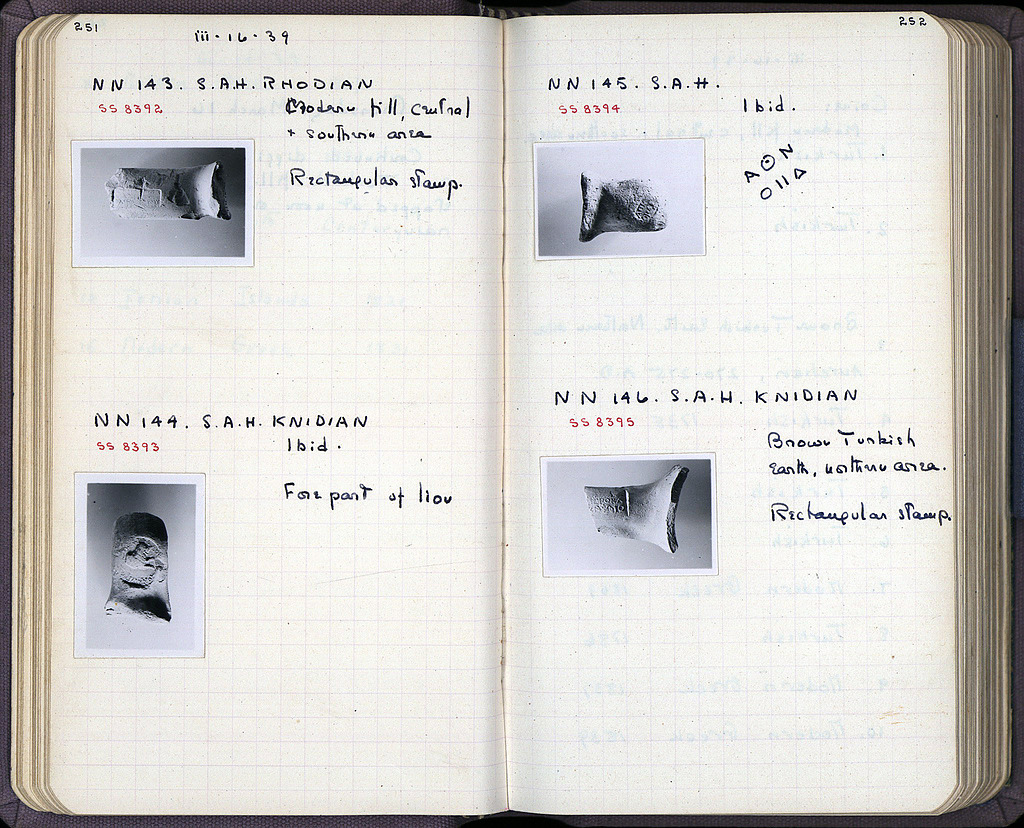 251
iii·16·39
NN 143. S.A.H. RHODIAN
SS 8392
Modern fill, central
+ southern area
Rectangular stamp.
NN 144. S.A.H. KNIDIAN
SS 8393
Ibid.
Fore part of lion
252
NN 145. S.A.H.
SS 8394
Ibid.
NN 146. S.A.H. KNIDIAN
SS 8395
Brown Turkish
Earth, northern area.
Rectangular stamp.